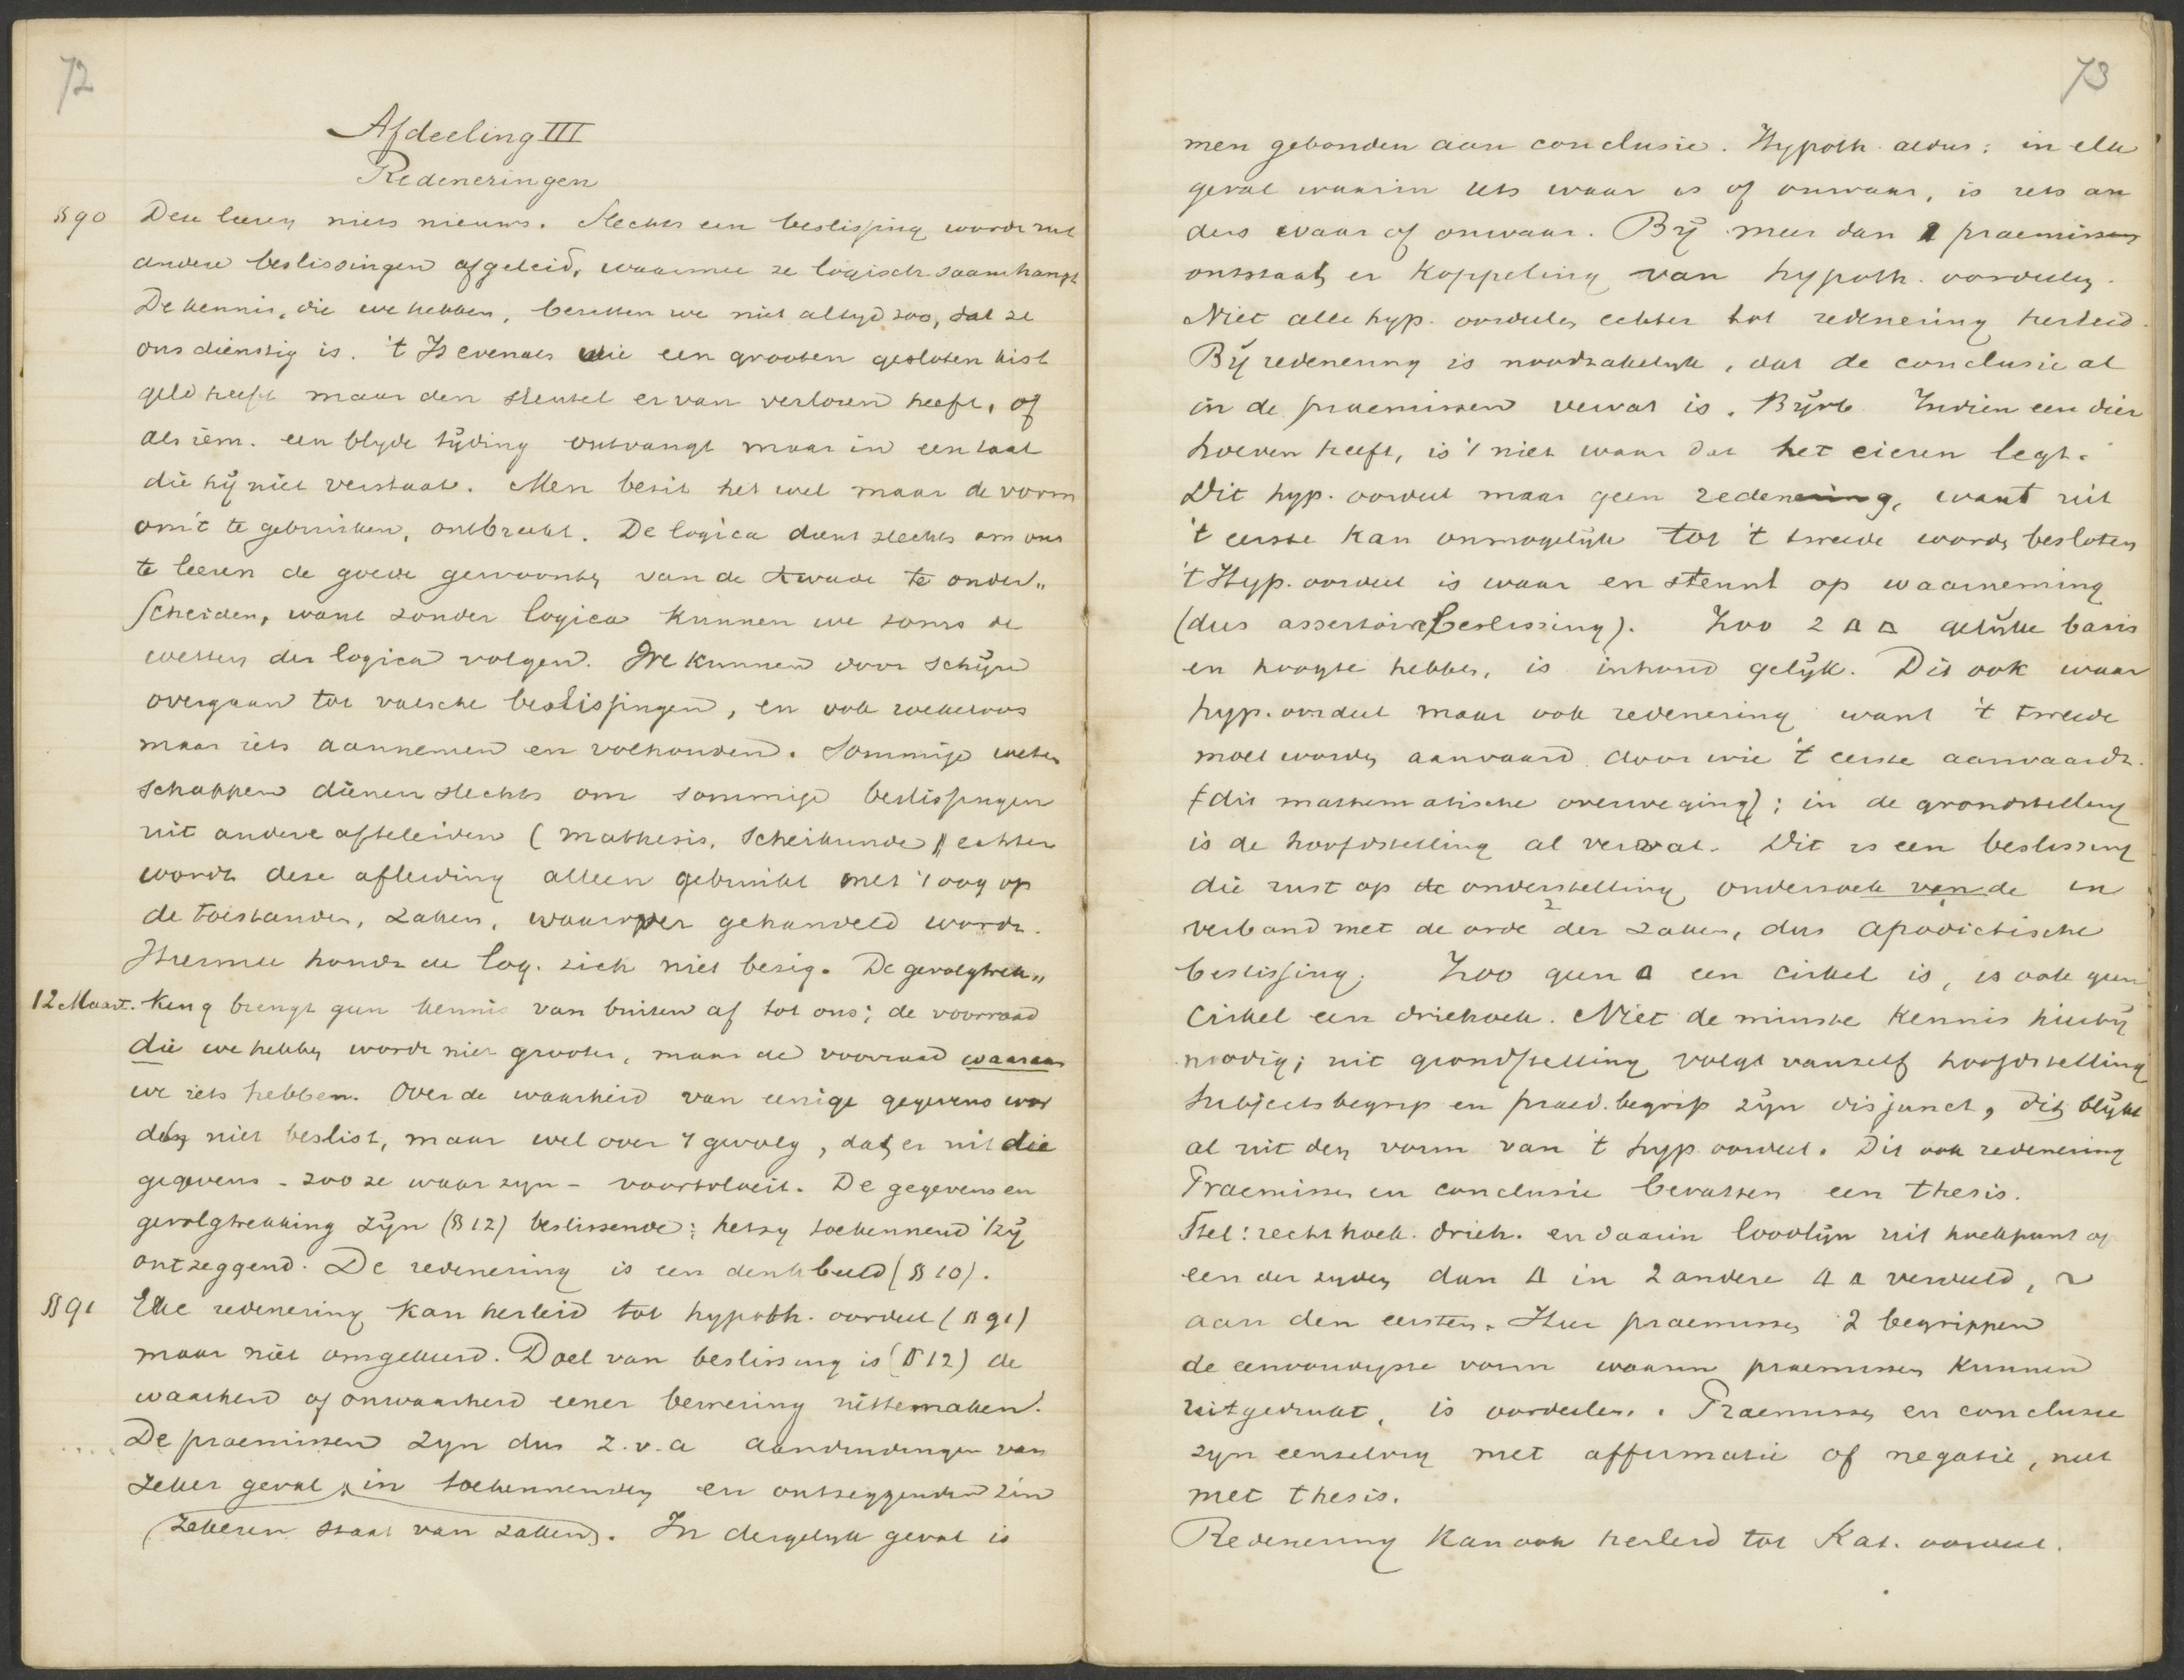 72
Afdeeling III
Redeneringen
§ 90 Deze leeren niets nieuws. Slechts een beslissing wordt uit
andere beslissingen afgeleid, waarmee ze logisch saamhangt
De kennis, die we hebben, bezitten we niet altyd zoo, dat ze
ons dienstig is. 't Is evenals wie een grooten gesloten kist
geld heeft maar den sleutel ervan verloren heeft, of
als iem. een blyde tijding ontvangt maar in een taal
die hij niet verstaat. Men bezit het wel maar de vorm
om 't te gebruiken, ontbreekt. De logica dient slechts om ons
te leeren de goede gewoonten van de kwade te onder„
scheiden, want zonder logica kunnen we soms de
wetten der logica volgen. We kunnen door schijn
overgaan tot valsche beslissingen, en ook roekeloos
maar iets aannemen en volhouden. Sommige weten
schappen dienen slechts om sommige beslissingen
uit andere afteleiden (mathesis, scheikunde) echter
wordt deze afleiding alleen gebruikt met 't oog op
de toestanden, zaken, waarover gehandeld wordt.
Hiermee houdt de log. zich niet bezig. De gevolgtrek„
12 Maart. king brengt geen kennis van buiten af tot ons; de voorraad
die we hebben wordt niet grooter, maar de voorraad waaraan
we iets hebben. Over de waarheid van eenige gegevens wor
den niet beslist, maar wel over 't gevolg, dat er uit die
gegevens - zoo ze waar zyn - voortvloeit. De gegevens en
gevolgtrekking zijn (§ 12) beslissende: hetzy toekennend 'tzij
ontzeggend. De redenering is een denkbeeld (§ 10).
§ 91 Elke redenering kan herleid tot hypoth. oordeel (§ 91)
maar niet omgekeerd. Doel van beslissing is (§ 12) de
waarheid of onwaarheid eener bewering uittemaken.
De praemissen zyn dus z.v.a aanduidingen van
zeker geval, in toekennenden en ontzeggenden zin
(zekeren staat van zaken). In dergelyk geval is
73
men gebonden aan conclusie. Hypoth. aldus: in elk
geval waarin iets waar is of onwaar, is iets an
ders waar of onwaar. Bij meer dan 1 praemissen
ontstaat er koppeling van hypoth. oordeelen.
Niet alle hyp. oordeelen echter tot redenering herleid.
Bij redenering is noodzakelyk, dat de conclusie al
in de praemissen vervat is. Bijvb. Indien een dier
hoeven heeft, is 't niet waar dat het eieren legt.
Dit hyp. oordeel maar geen redenering, want uit
't eerste kan onmogelijk tot 't tweede worden besloten
't Hyp. oordeel is waar en steunt op waarneming
(dus assertoire beslissing). Zoo 2 △ △ gelijke basis
en hoogte hebben, is inhoud gelijk. Dit ook waar
hyp. oordeel maar ook redenering want 't tweede
moet worden aanvaard door wie 't eerste aanvaardt.
(dit mathematische overweging); in de grondstelling
is de hoofdstelling al vervat. Dit is een beslissing
die rust op de onderstelling, onderzoek van de in
verband met de orde der zaken, dus apodictische
beslissing. Zoo geen △ een cirkel is, is ook geen
cirkel een driehoek. Niet de minste kennis hierbij
noodig; uit grondstelling volgt vanzelf hoofdstelling
Subjectsbegrip en praed. begrip zijn disjunct, dit blijkt
al uit den vorm van 't hyp. oordeel. Dit ook redenering
Praemissen en conclusie bevatten een thesis.
Stel: rechthoek. drieh. en daarin loodlijn uit hoekpunt op
een der zyden dan △ in 2 andere △ △ verdeeld, ~
aan den eersten. Hier praemissen 2 begrippen
de eenvoudigste vorm waarin praemissen kunnen
uitgedrukt, is oordeelen. Praemissen en conclusie
zyn eenzelvig met affirmatie of negatie, niet
met thesis.
Redenering kan ook herleid tot Kat. oordeel.